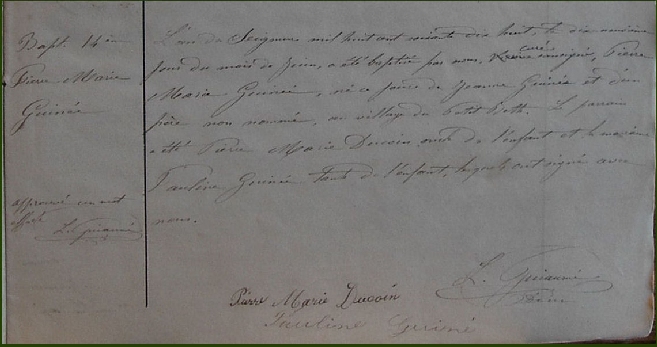 Bapt. 14e
Pierre Marie
Guinée
approuvé un mot
L. Guianné
L'an du Seigneur mil huit cent soixante dix huit, le dix neuvième
jour du mois de Juin, a été baptisé par nous, curé soussigné, Pierre
Marie Guinée, né ce jour de Jeanne Guinée et d'un
père non nommé, au village du Petit. Le parrain
a été Pierre Marie Ducoin oncle de l'enfant et la marraine
Pauline Guinée tante de l'enfant, lesquels ont signé avec
nous.
L. Guianné
Pierre Marie Ducoin
Pauline Guiné